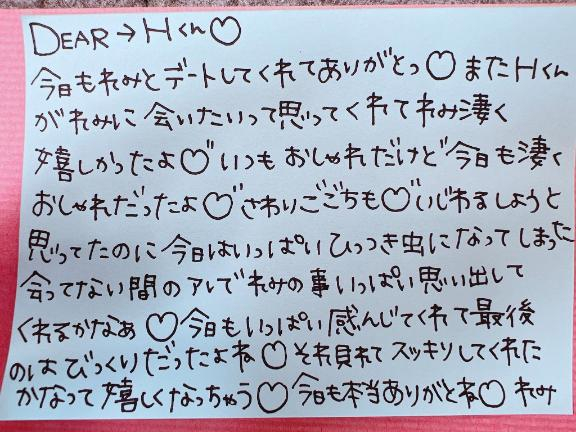 DEAR→Hくん♡
今日もれみとデートしてくれてありがとっ♡またHくん
がれみに会いたいって思ってくれてれみ凄く
嬉しかったよ♡いつもおしゃれだけど今日も凄く
おしゃれだったよ♡さわりごごちも♡いじわるしようと
思ってたのに今日はいっぱいひっつき虫になってしまった
会ってない間のアレでれみの事いっぱい思い出して
くれるかなあ♡今日もいっぱい感んじてくれて最後
のはびっくりだったよね♡それ見れてスッキリしてくれた
かなって嬉しくなっちゃう♡今日も本当ありがとね♡れみ